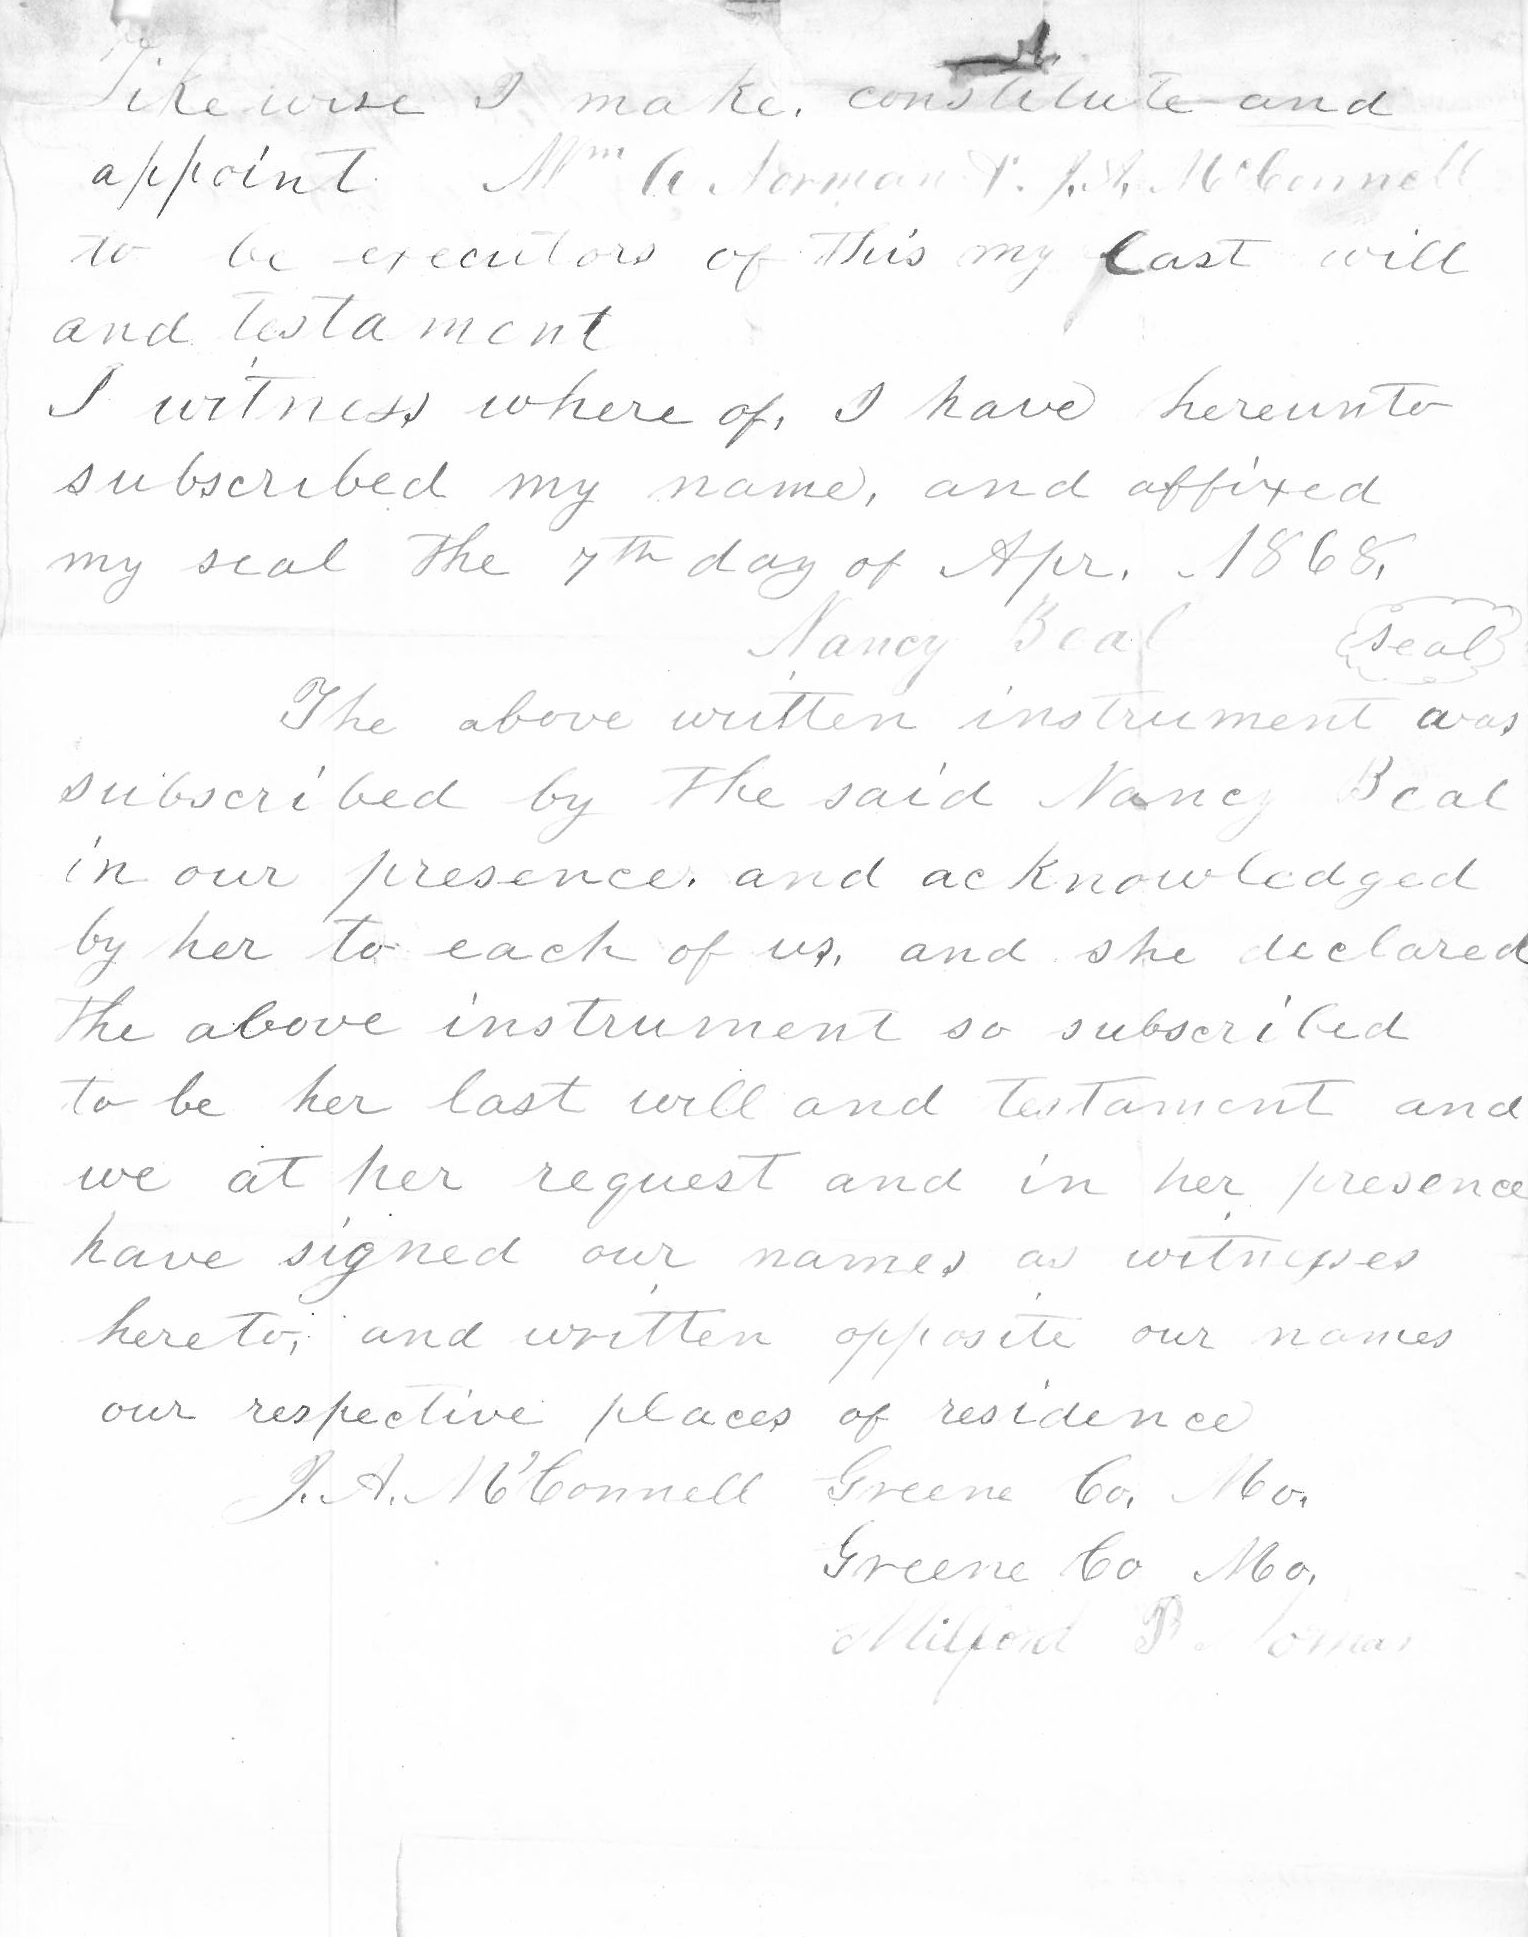 Likewise I make, constitute and
appoint Wm A Norman & J. A. McConnell
to be executors of this my last will
and testament
I witness where of, I have hereunto
subscribed my name, and affixed
my seal the 7th day of Apr. 1868.
Nancy Beal seal
The above written instrument was
subscribed by the said Nancy Beal
in our presence. and acknowledged
by her to each of us, and she declared
the above instrument so subscribed
to be her last will and testament and
we at her request and in her presence
have signed our names as witnesses
hereto; and written opposite our names
our respective places of residence
J. A. McConnell Greene Co. Mo.
Greene Co Mo.
Milford B Norman